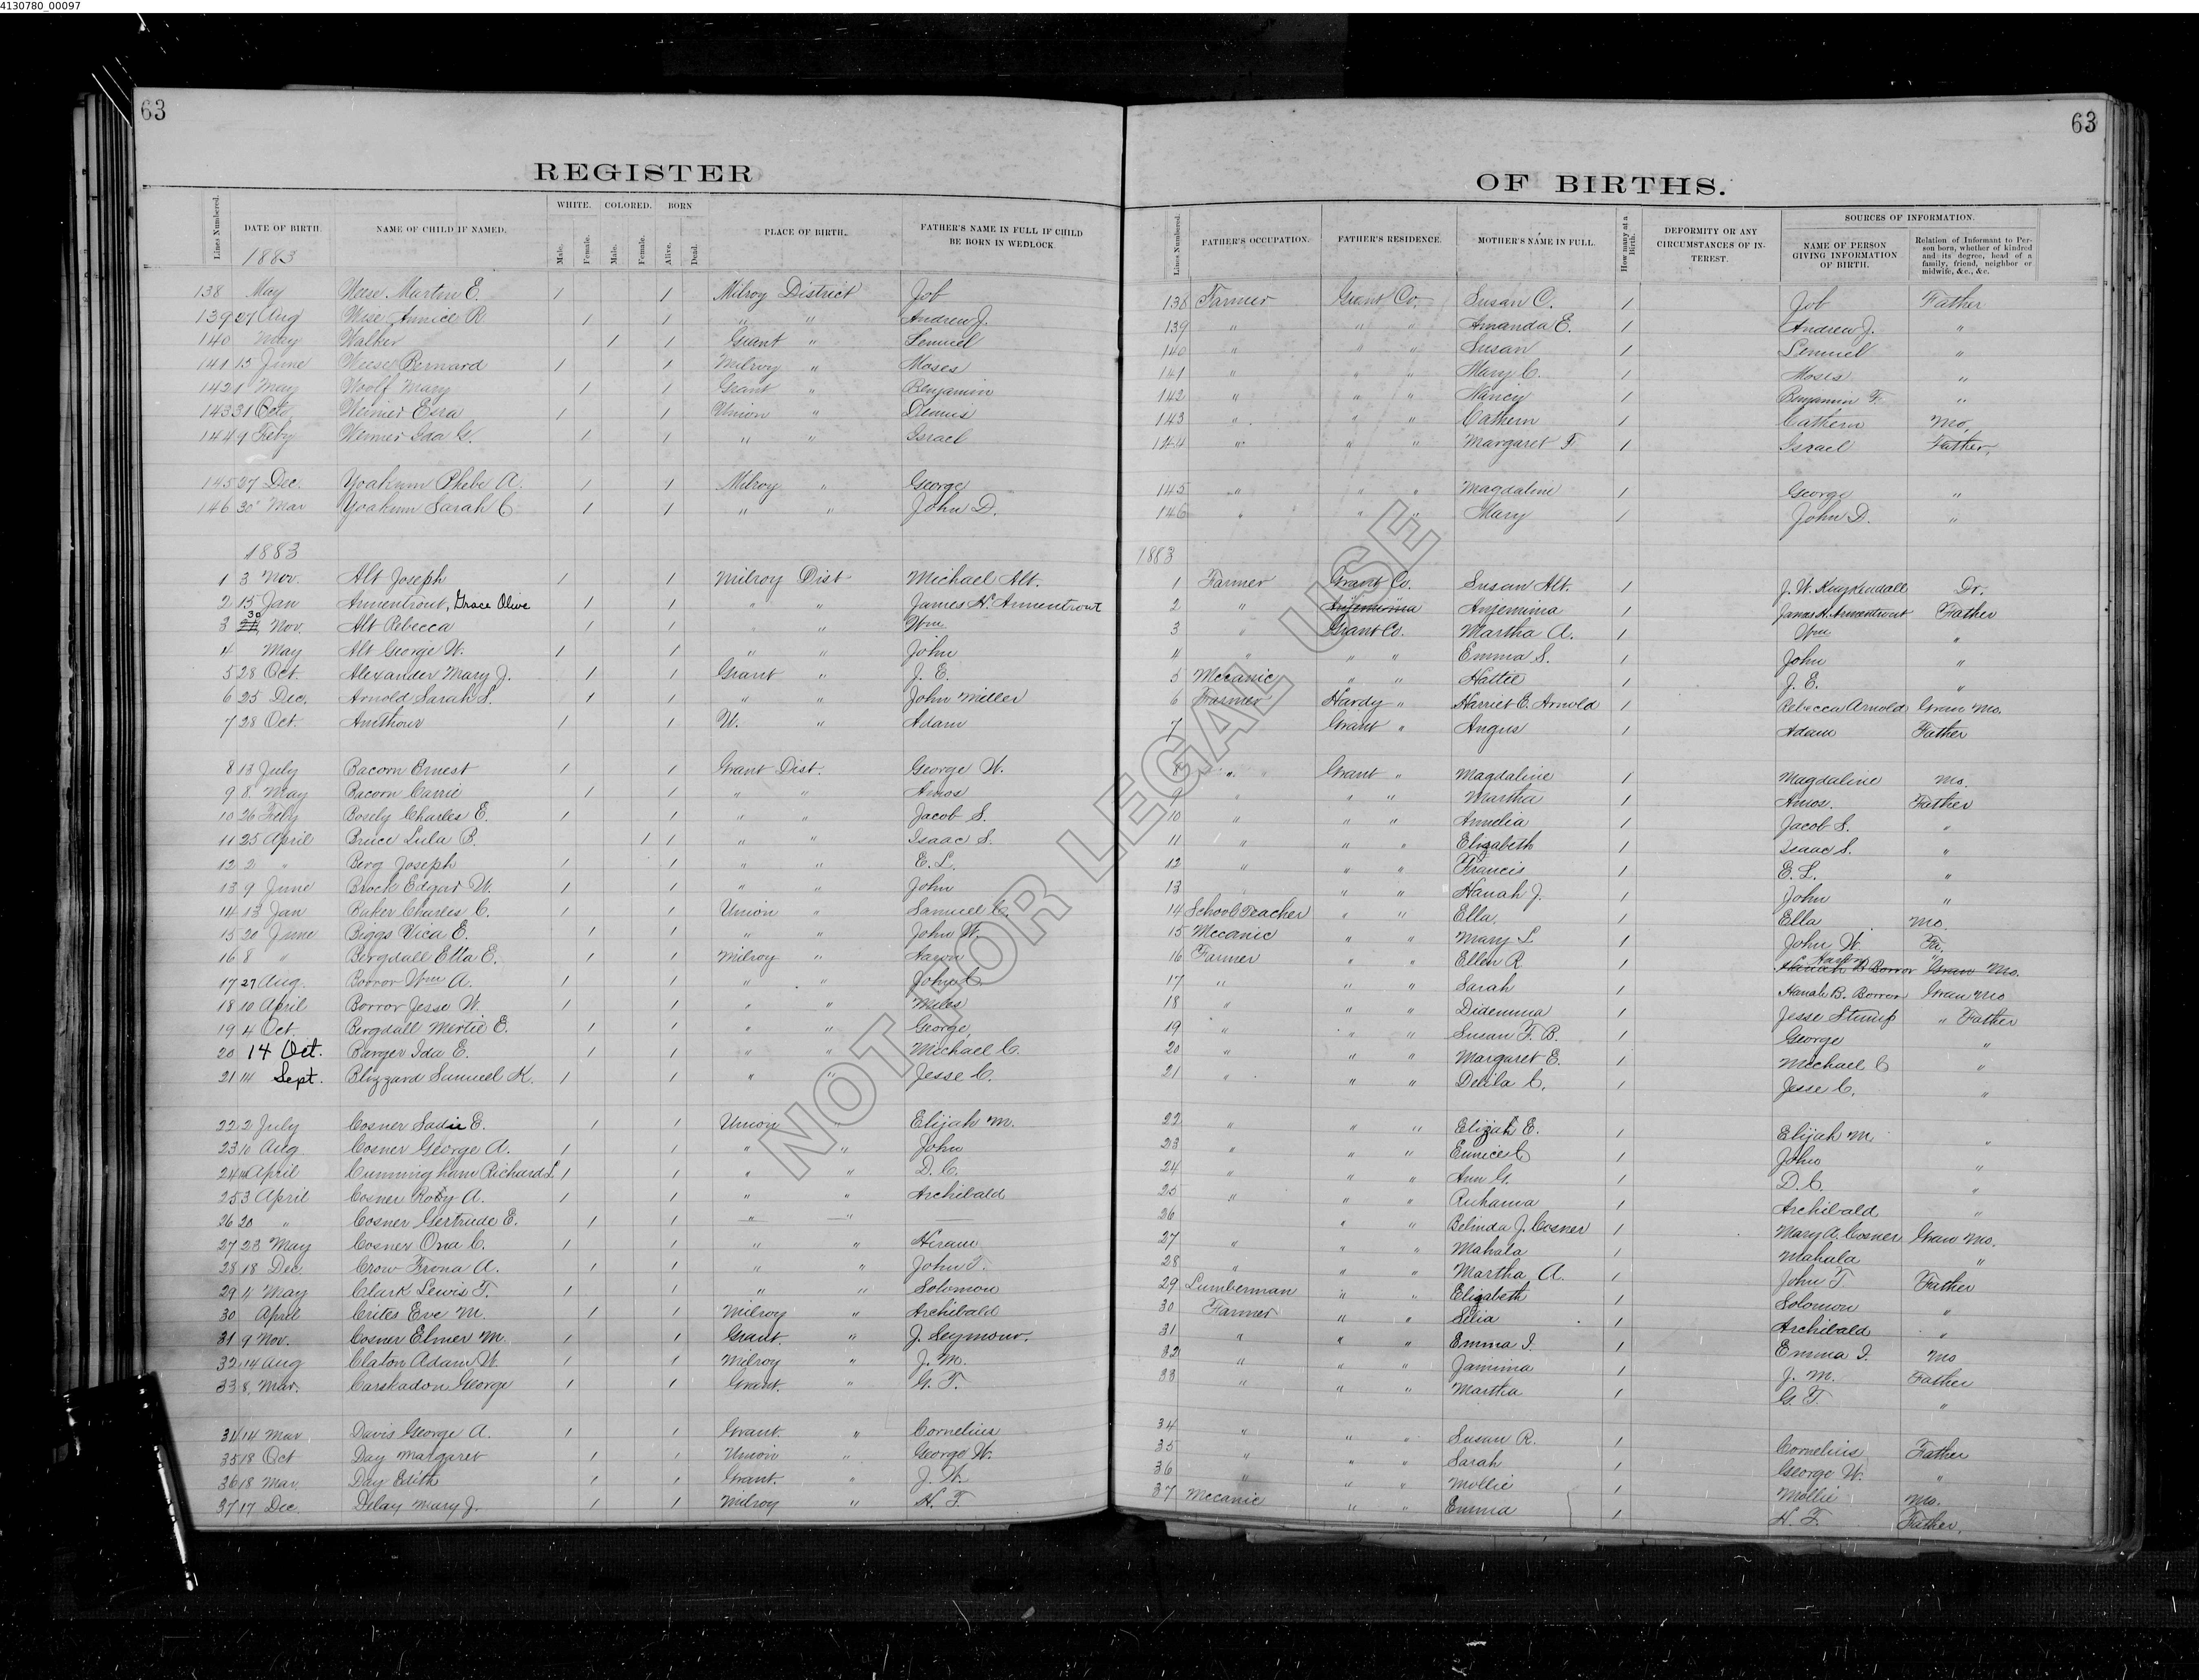 4130780_00097
63
63
REGISTER
OF BIRTHS.
Lines Numbered. DATE OF BIRTH. NAME OF CHILD IF NAMED. WHITE. Male. Female. COLORED. Male. Female. BORN Alive. Dead. PLACE OF BIRTH. FATHER'S NAME IN FULL IF CHILD BE BORN IN WEDLOCK.
Lines Numbered. FATHER'S OCCUPATION. FATHER'S RESIDENCE. MOTHER'S NAME IN FULL. How many at a Birth. DEFORMITY OR ANY CIRCUMSTANCES OF INTEREST. SOURCES OF INFORMATION. NAME OF PERSON GIVING INFORMATION OF BIRTH. Relation of Informant to Person born, whether of kindred and its degree, head of a family, friend, neighbor or midwife, &c., &c.
1883
138 May Weese Martin E. 1 1 Milroy District Job 138 Farmer Grant Co. Susan C. 1 Job Father
139 27 Aug Wise Annice R 1 1 " " Andrew J. 139 " " " Amanda E. 1 Andrew J. "
140 May Walker 1 1 Grant " Lemuel 140 " " " Susan 1 Lemuel "
141 15 June Weese Bernard 1 1 Milroy " Moses 141 " " " Mary C. 1 Moses "
142 1 May Woolf Mary 1 1 Grant " Benjamin 142 " " " Nancy 1 Benjamin F. "
143 31 Oct. Weimer Esra 1 1 Union " Dennis 143 " " " Cathern 1 Cathern Mo.
144 9 Feby Weimer Ida G. 1 1 " " Israel 144 " " " Margaret F. 1 Israel Father
145 27 Dec. Yoakum Phebe A. 1 1 Milroy " George 145 " " " Magdaline 1 George "
146 30 Mar Yoakum Sarah C 1 1 " " John D. 146 " " " Mary 1 John D. "
1883 1883
1 3 Nov. Alt Joseph 1 1 Milroy Dist Michael Alt. 1 Farmer Grant Co. Susan Alt. 1 J. W. Kuykendall Dr.
2 15 Jan Armentrout, Grace Olive 1 1 " " James H. Armentrout 2 " Anjemima Anjemima 1 James H. Armentrout Father
3 30 Nov. Alt Rebecca 1 1 " " Wm 3 " Grant Co. Martha A. 1 Wm "
4 May Alt George W. 1 1 " " John 4 " " " Emma S. 1 John "
5 28 Oct. Alexander Mary J. 1 1 Grant " J. E. 5 Mecanic " " Hattie 1 J. E. "
6 25 Dec. Arnold Sarah S. 1 1 " " John Miller 6 Farmer Hardy " Harriet E. Arnold 1 Rebecca Arnold Gran Mo.
7 28 Oct. Amthour 1 1 U. " Adam 7 Grant " Angus 1 Adam Father
8 13 July Bacorn Ernest 1 1 Grant Dist. George W. 8 " Grant " Magdaline 1 Magdaline Mo.
9 8 May Bacorn Carrie 1 1 " " Amos 9 " " " Martha 1 Amos. Father
10 26 Feby Bosely Charles E. 1 1 " " Jacob S. 10 " " " Amelia 1 Jacob S. "
11 25 April Bruce Lula B. 1 1 " " Isaac S. 11 " " " Elizabeth 1 Isaac S. "
12 2 " Berg Joseph 1 1 " " E. L. 12 " " " Francis 1 E. L. "
13 9 June Brock Edgar W. 1 1 " " John 13 " " Hanah J. 1 John "
14 13 Jan Baker Charles C. 1 1 Union " Samuel C. 14 School Teacher " " Ella 1 Ella Mo.
15 20 June Biggs Vica E. 1 1 " " John W. 15 Mecanic " " Mary L 1 John W. Fa.
16 8 " Bergdall Etta E. 1 1 Milroy " Aaron 16 Farmer " " Ellen R 1 Aaron Hanah B Borror Gran Mo.
17 27 Aug. Borror Wm A. 1 1 " " John C. 17 " " " Sarah 1 Hanah B. Borror Gran Mo
18 10 April Borror Jesse W. 1 1 " " Miles 18 " " " Didemma 1 Jesse Stump " Father
19 4 Oct. Bergdall Mertie E. 1 1 " " George 19 " " " Susan F. B. 1 George "
20 14 Oct. Barger Ida E. 1 1 " " Michael C. 20 " " " Margaret E. 1 Michael C "
21 14 Sept. Blizzard Samuel K. 1 1 " " Jesse C. 21 " " " Delila C. 1 Jesse C. "
22 2 July Cosner Sadie E. 1 1 Union " Elijah M. 22 " " " Elizah E. 1 Elijah M "
23 10 Aug Cosner George A. 1 1 " " John 23 " " " Eunice C 1 John "
24 14 April Cunningham Richard L. 1 1 " " D. C. 24 " " " Ann G. 1 D. C. "
25 3 April Cosner Roby A. 1 1 " " Archibald 25 " " " Ruhama 1 Archibald "
26 20 " Cosner Gertrude E. 1 1 " " 26 " " Belinda J. Cosner 1 Mary A. Cosner Gran Mo.
27 23 May Cosner Ona C. 1 1 " " Hiram 27 " " " Mahala 1 Mahala "
28 18 Dec Crow Frona A. 1 1 " " John T. 28 " " " Martha A. 1 John T Father
29 11 May Clark Lewis F. 1 1 " " Solomon 29 Lumberman " " Elizabeth 1 Solomon "
30 April Crites Eve M. 1 1 Milroy " Archibald 30 Farmer " " Selia 1 Archibald "
31 9 Nov. Cosner Elmer M. 1 1 Grant " J. Seymour. 31 " " " Emma I. 1 Emma I. Mo
32 14 Aug Claton Adam W. 1 1 Milroy " J. M. 32 " " " Jamima 1 J. M. Father
33 8 Mar. Carskadon George 1 1 Grant. " G. T. 33 " " " Martha 1 G. T. "
34 14 Mar Davis George A. 1 1 Grant. " Cornelius 34 " " " Susan R. 1 Cornelius Father
35 18 Oct Day Margaret 1 1 Union " George W. 35 " " " Sarah 1 George W. "
36 18 Mar. Day Edith 1 1 Grant. " J. W. 36 " " " Mollie 1 Mollie Mo.
37 17 Dec Delay Mary J. 1 1 Milroy " H. F. 37 Mecanic " " Emma 1 H. F. Father.
NOT FOR LEGAL USE